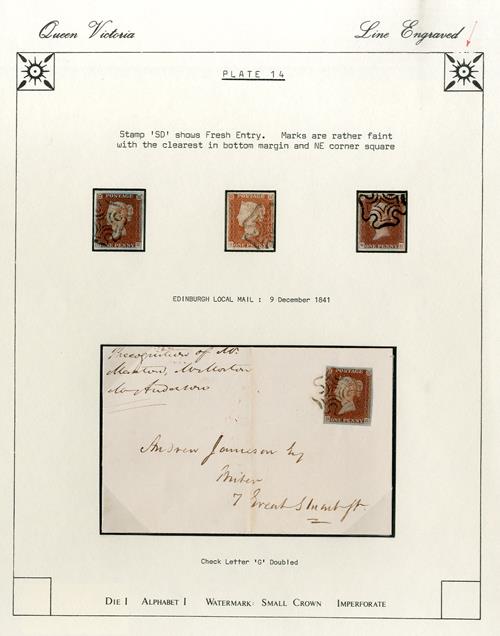 Queen Victoria
Line Engraved
PLATE 14
Stamp 'SD' shows Fresh Entry. Marks are rather faint
with the clearest in bottom margin and NE corner square
POSTAGE
ONE PENNY
POSTAGE
ONE PENNY
ONE PENNY
EDINBURGH LOCAL MAIL : 9 December 1841
Precognition of Mr
Morton
Mr Anderson
POSTAGE
ONE PENNY
Andrew Jameson Esq
Writer
7 Great Stuart St.
Check Letter 'G' Doubled
DIE I ALPHABET I WATERMARK: SMALL CROWN IMPERFORATE